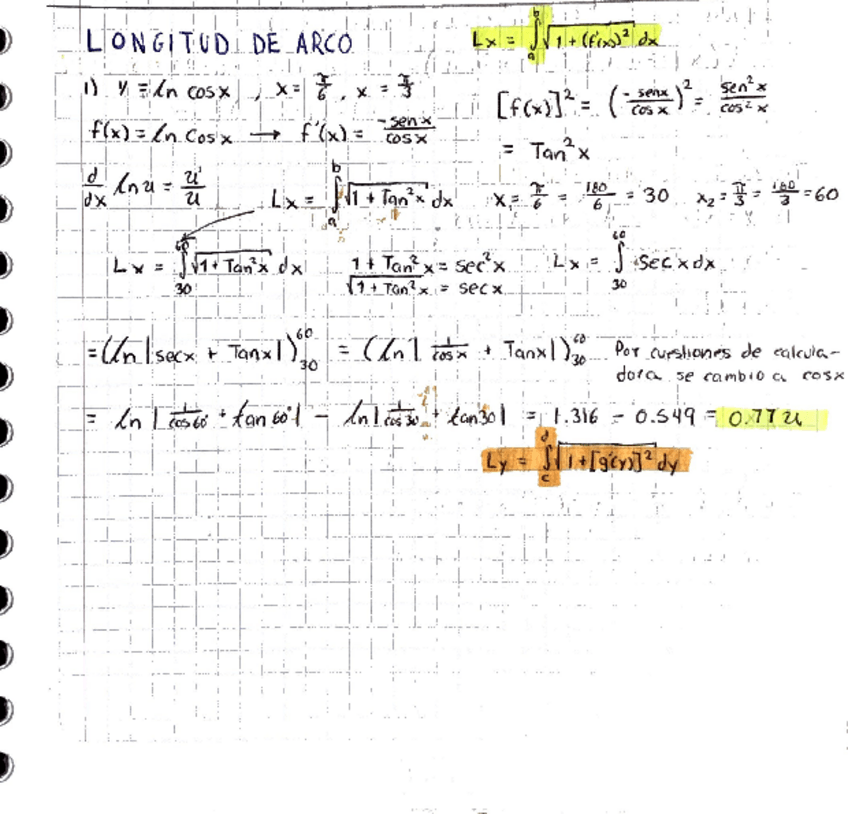 LONGITUD DE ARCO
Lx = ∫ₐᵇ √(1 + (f'(x))²) dx
1) y = ln cosx , x = π/6 , x = π/3
[f(x)]² = (-senx/cosx)² = sen²x/cos²x
f(x) = ln Cosx → f'(x) = -senx/cosx
= Tan²x
d/dx ln u = u'/u
Lx = ∫ₐᵇ √(1 + Tan²x) dx
x₁ = π/6 = 180/6 = 30
x₂ = π/3 = 180/3 = 60
Lx = ∫₃₀⁶⁰ √(1 + Tan²x) dx
1 + Tan²x = sec²x
√(1 + Tan²x) = secx
Lx = ∫₃₀⁶⁰ Sec x dx
= (ln |secx + Tanx|)₃₀⁶⁰ = (ln | 1/cosx + Tanx|)₃₀⁶⁰
Por cuestiones de calcula-
dora se cambio a cosx
= ln | 1/cos60° + tan 60°| - ln | 1/cos 30 + tan30| = 1.316 - 0.549 = 0.77 u
Ly = ∫_c^d √(1 + [g'(y)]²) dy